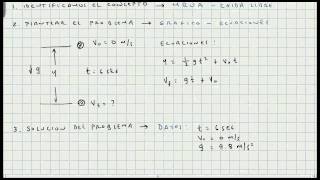 1. IDENTIFICAMOS EL CONCEPTO → MRUA - CAIDA LIBRE
2. PLANTEAR EL PROBLEMA → GRAFICO - ECUACIONES
V₀ = 0 m/s
ECUACIONES:
g
y
t = 6 seg
y = ½ g t² + V₀ t
V_f = g t + V₀
V_f = ?
3. SOLUCION DEL PROBLEMA → DATOS: t = 6 seg
V₀ = 0 m/s
g = 9.8 m/s²